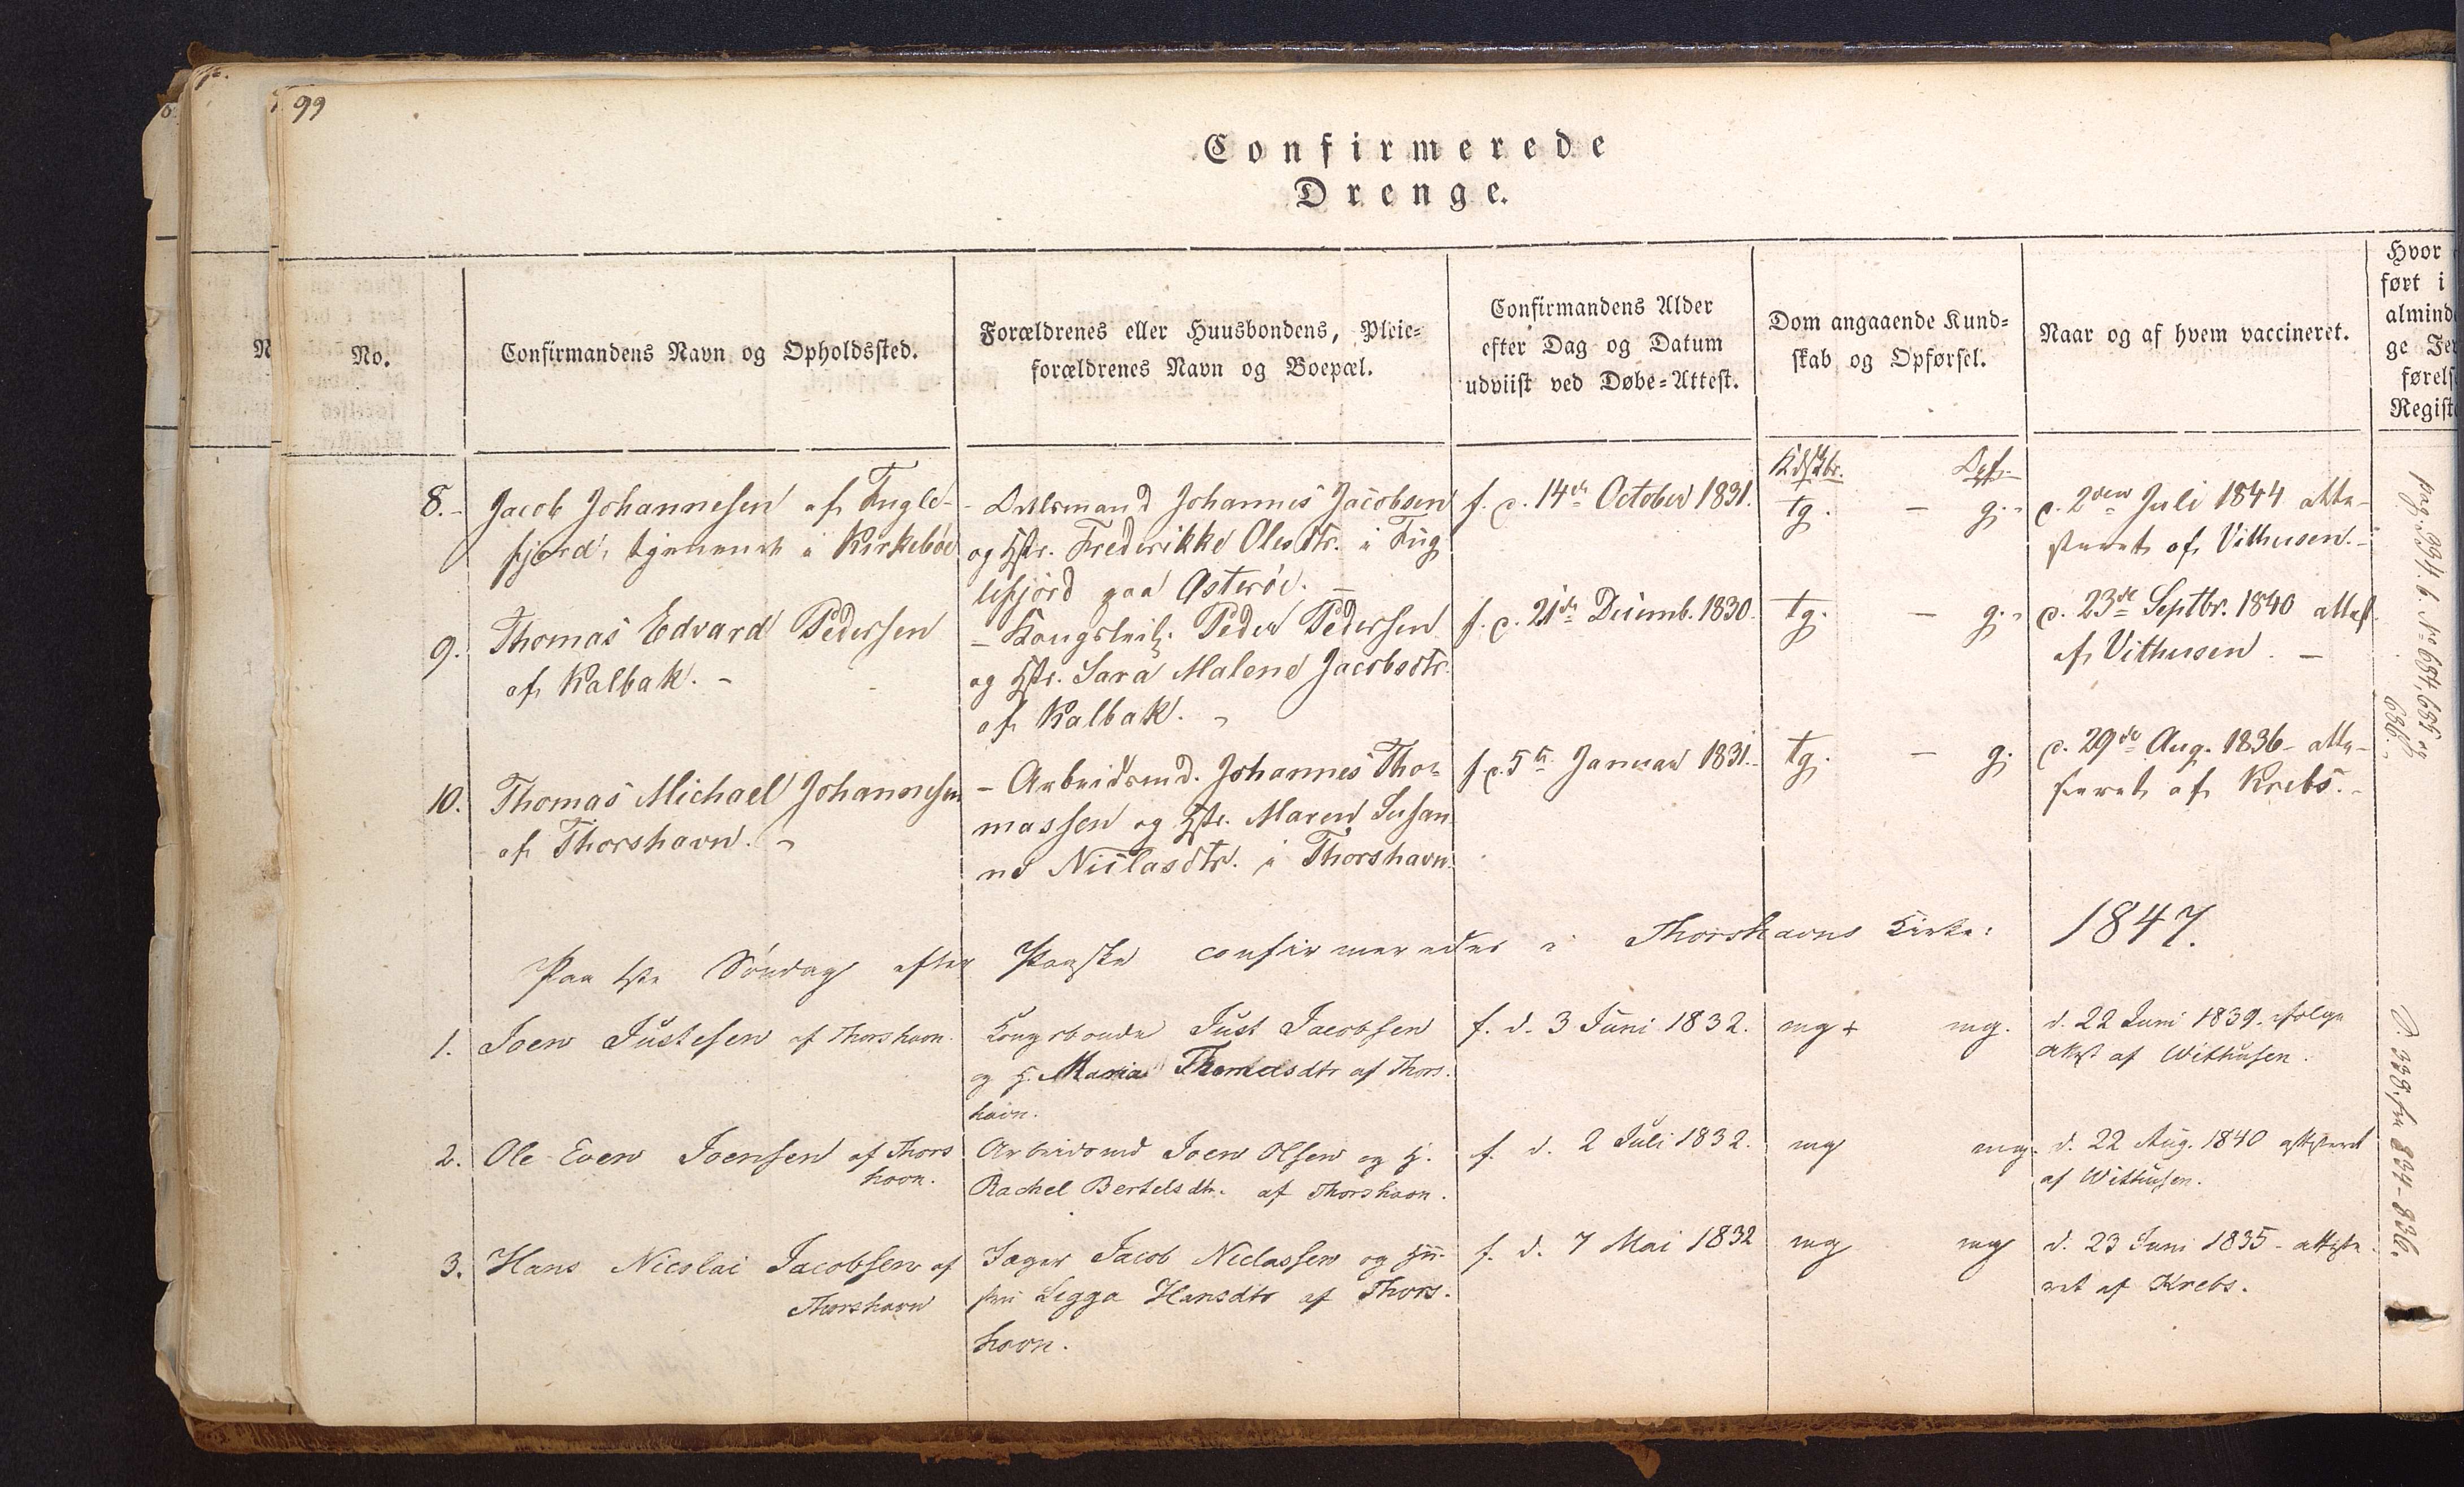 99
Confirmerede
Drenge.
No.
Confirmandens Navn og Opholdssted.
Forældrenes eller Huusbondens, Pleie-
forældrenes Navn og Boepæl.
Confirmandens Alder
efter Dag og Datum
udviist ved Døbe-Attest.
Dom angaaende Kund-
skab og Opførsel.
Naar og af hvem vaccineret.
Hvor
ført i
almind
ge Je
førels
Regist
8.-
Jacob Johannesen af Fugle-
fjord, tjenende i Kirkebøe
Johannes Jacobsen
og Hstr. Frederikke Olesdtr. i Fug
lefjord paa Østerøe. -
f. d. 14de October 1831.
Kdskbr. Opf.-
tg. - g.-
d. 2den Juli 1844 atte-
steret af Vithusen.-
9.
Thomas Edvard Pedersen
af Kalbak. -
- Peder Pedersen
og Hstr. Sara Malene Jacobsdtr.
af Kalbak. -
f. d. 21de Decemb. 1830.
tg. - g.-
d. 23de Septbr. 1840 attest.
af Vithusen. -
10.
Thomas Michael Johannesen
af Thorshavn. -
- Arbeidsmd. Johannes Tho-
massen og Hstr. Maren Susan
ne Niclasdtr. i Thorshavn.
f. d. 5te Januar 1831.-
tg. - g.
d. 29de Aug. 1836- atte-
steret af Krebs.-
pag. 334. 6. No 634, 635 og
636.-
Paa 1ste Søndag efter Paaske confirmeredes i Thorshavns Kirke: 1847.
1.
Joen Justesen af Thorshavn.
Kongsbonde Just Jacobsen
og H. Maria Thomasdtr af Thors-
havn.
f. d. 3 Juni 1832.
mg+ mg.
d. 22 Juni 1839. ifølge
Attest af Withusen.
2.
Ole Even Joensen af Thors
havn.
Arbeidsmd Joen Olsen og H.
Rachel Bertelsdtr. af Thorshavn.
f. d. 2 Juli 1832.
mg mg.
d. 22 Aug. 1840 attesteret
af Withusen.
3.
Hans Nicolai Jacobsen af
Thorshavn
Jæger Jacob Niclassen og Hu-
stru Sigga Hansdtr af Thors-
havn.
f. d. 7 Mai 1832
mg mg
d. 23 Juni 1835 - atteste-
ret af Krebs.
P. 338, fra 834-836.